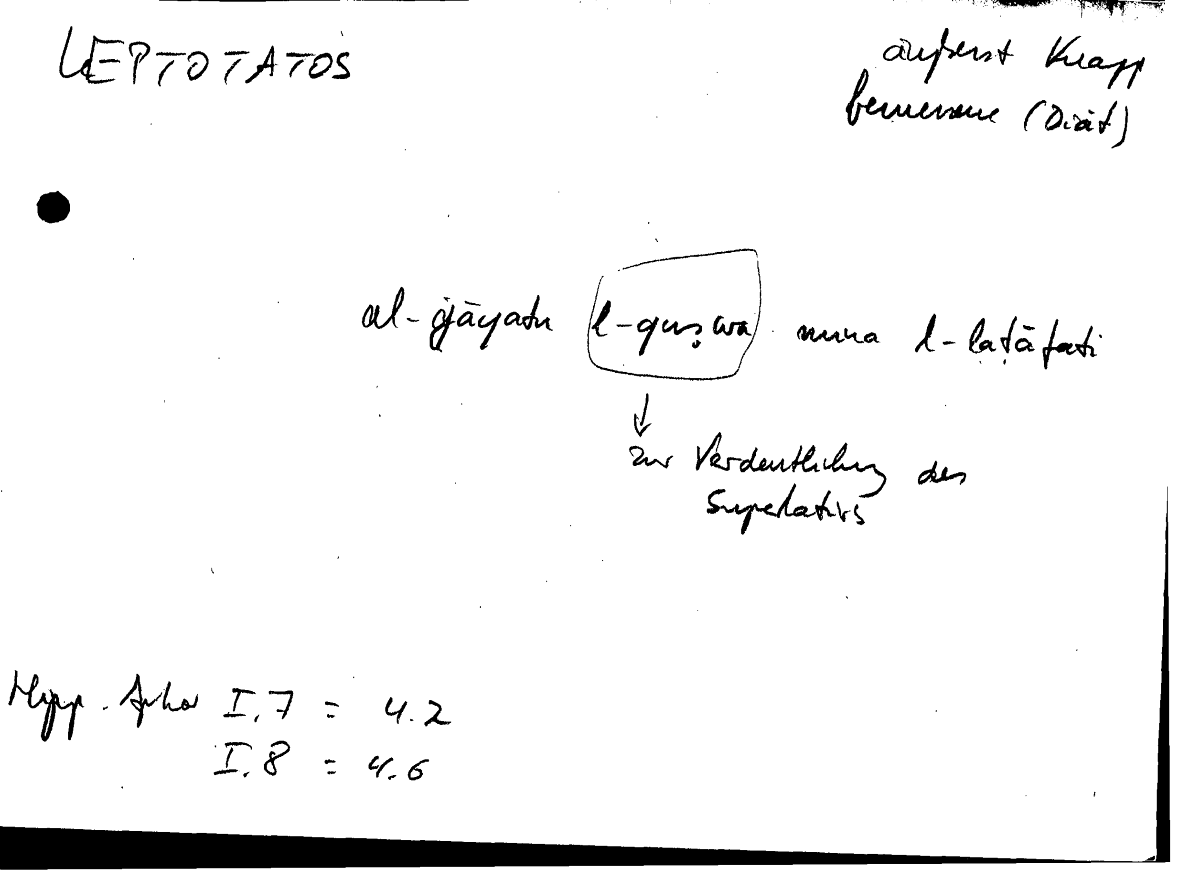 LEPTOTATOS
äußerst knapp
bemessene (Diät)
al-ġāyatu l-quṣwa mina l-laṭāfati
↓
zur Verdeutlichung des
Superlativs
Hipp. Apho I,7 = 4.2
I.8 = 4.6